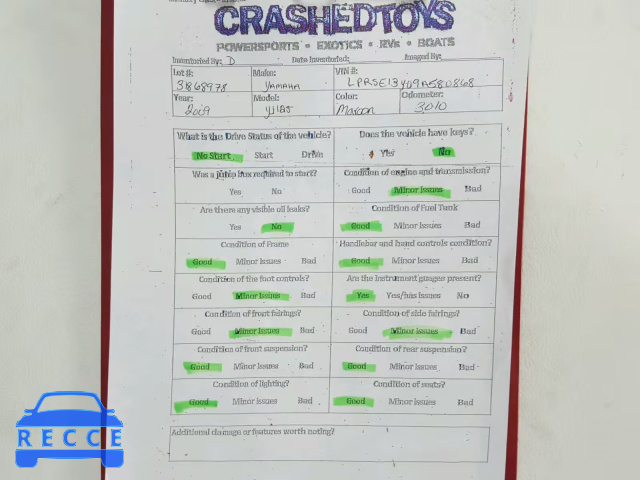 CRASHEDTOYS
POWERSPORTS • EXOTICS • RVs • BOATS
Inventoried By: D Date Inventoried: Imaged By:
Lot #: Make: VIN #:
31868978 YAMAHA LPRSE13Y09A580868
Year: Model: Color: Odometer:
2009 Maroon 3010
What is the Drive Status of the vehicle? Does the vehicle have keys?
No Start Start Drive Yes No
Was a jump box required to start? Condition of engine and transmission?
Yes No Good Minor Issues Bad
Are there any visible oil leaks? Condition of Fuel Tank
Yes No Good Minor Issues Bad
Condition of Frame Handlebar and hand controls condition?
Good Minor Issues Bad Good Minor Issues Bad
Condition of the foot controls? Are the instrument guages present?
Good Minor Issues Bad Yes Yes/has Issues No
Condition of front fairings? Condition of side fairings?
Good Minor Issues Bad Good Minor Issues Bad
Condition of front suspension? Condition of rear suspension?
Good Minor Issues Bad Good Minor Issues Bad
Condition of lighting? Condition of seats?
Good Minor Issues Bad Good Minor Issues Bad
Additional damage or features worth noting?
RECCE